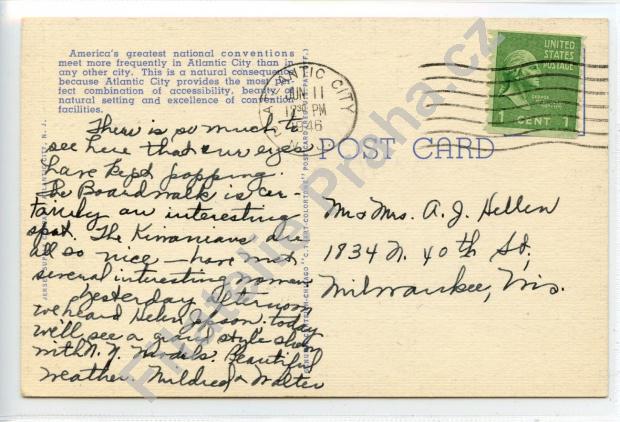 America's greatest national conventions
meet more frequently in Atlantic City than in
any other city. This is a natural consequence
because Atlantic City provides the most per-
fect combination of accessibility, beauty of
natural setting and excellence of convention
facilities.
There is so much to
see here that our eyes
have kept popping.
The Boardwalk is cer-
tainly an interesting
spot. The Kiwanians are
all so nice - have met
several interesting women
Yesterday afternoon
we heard Helen Jepson. today
we'll see a grand style show
with N.Y. Models. Beautiful
weather Mildred & Walter
ATLANTIC CITY
JUN 11
12 30 PM
1946
UNITED
STATES
POSTAGE
1 CENT 1
POST CARD
Mr & Mrs. A. J. Hellen
1834 N. 40th St,
Milwaukee, Wis.
Filatelie Praha.cz